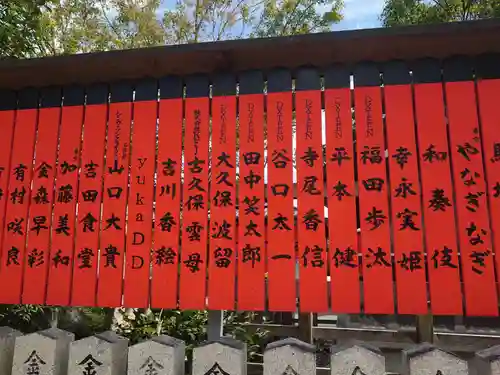 やなぎなぎ
和奏伎
幸永実姫
DXTEEN
福田歩汰
DXTEEN
平本健
DXTEEN
寺尾香信
DXTEEN
谷口太一
DXTEEN
田中笑太郎
DXTEEN
大久保波留
久保雲母
吉川香絵
yukaDD
山口大貴
吉田食堂
加藤美和
金森早彩
有村咲良